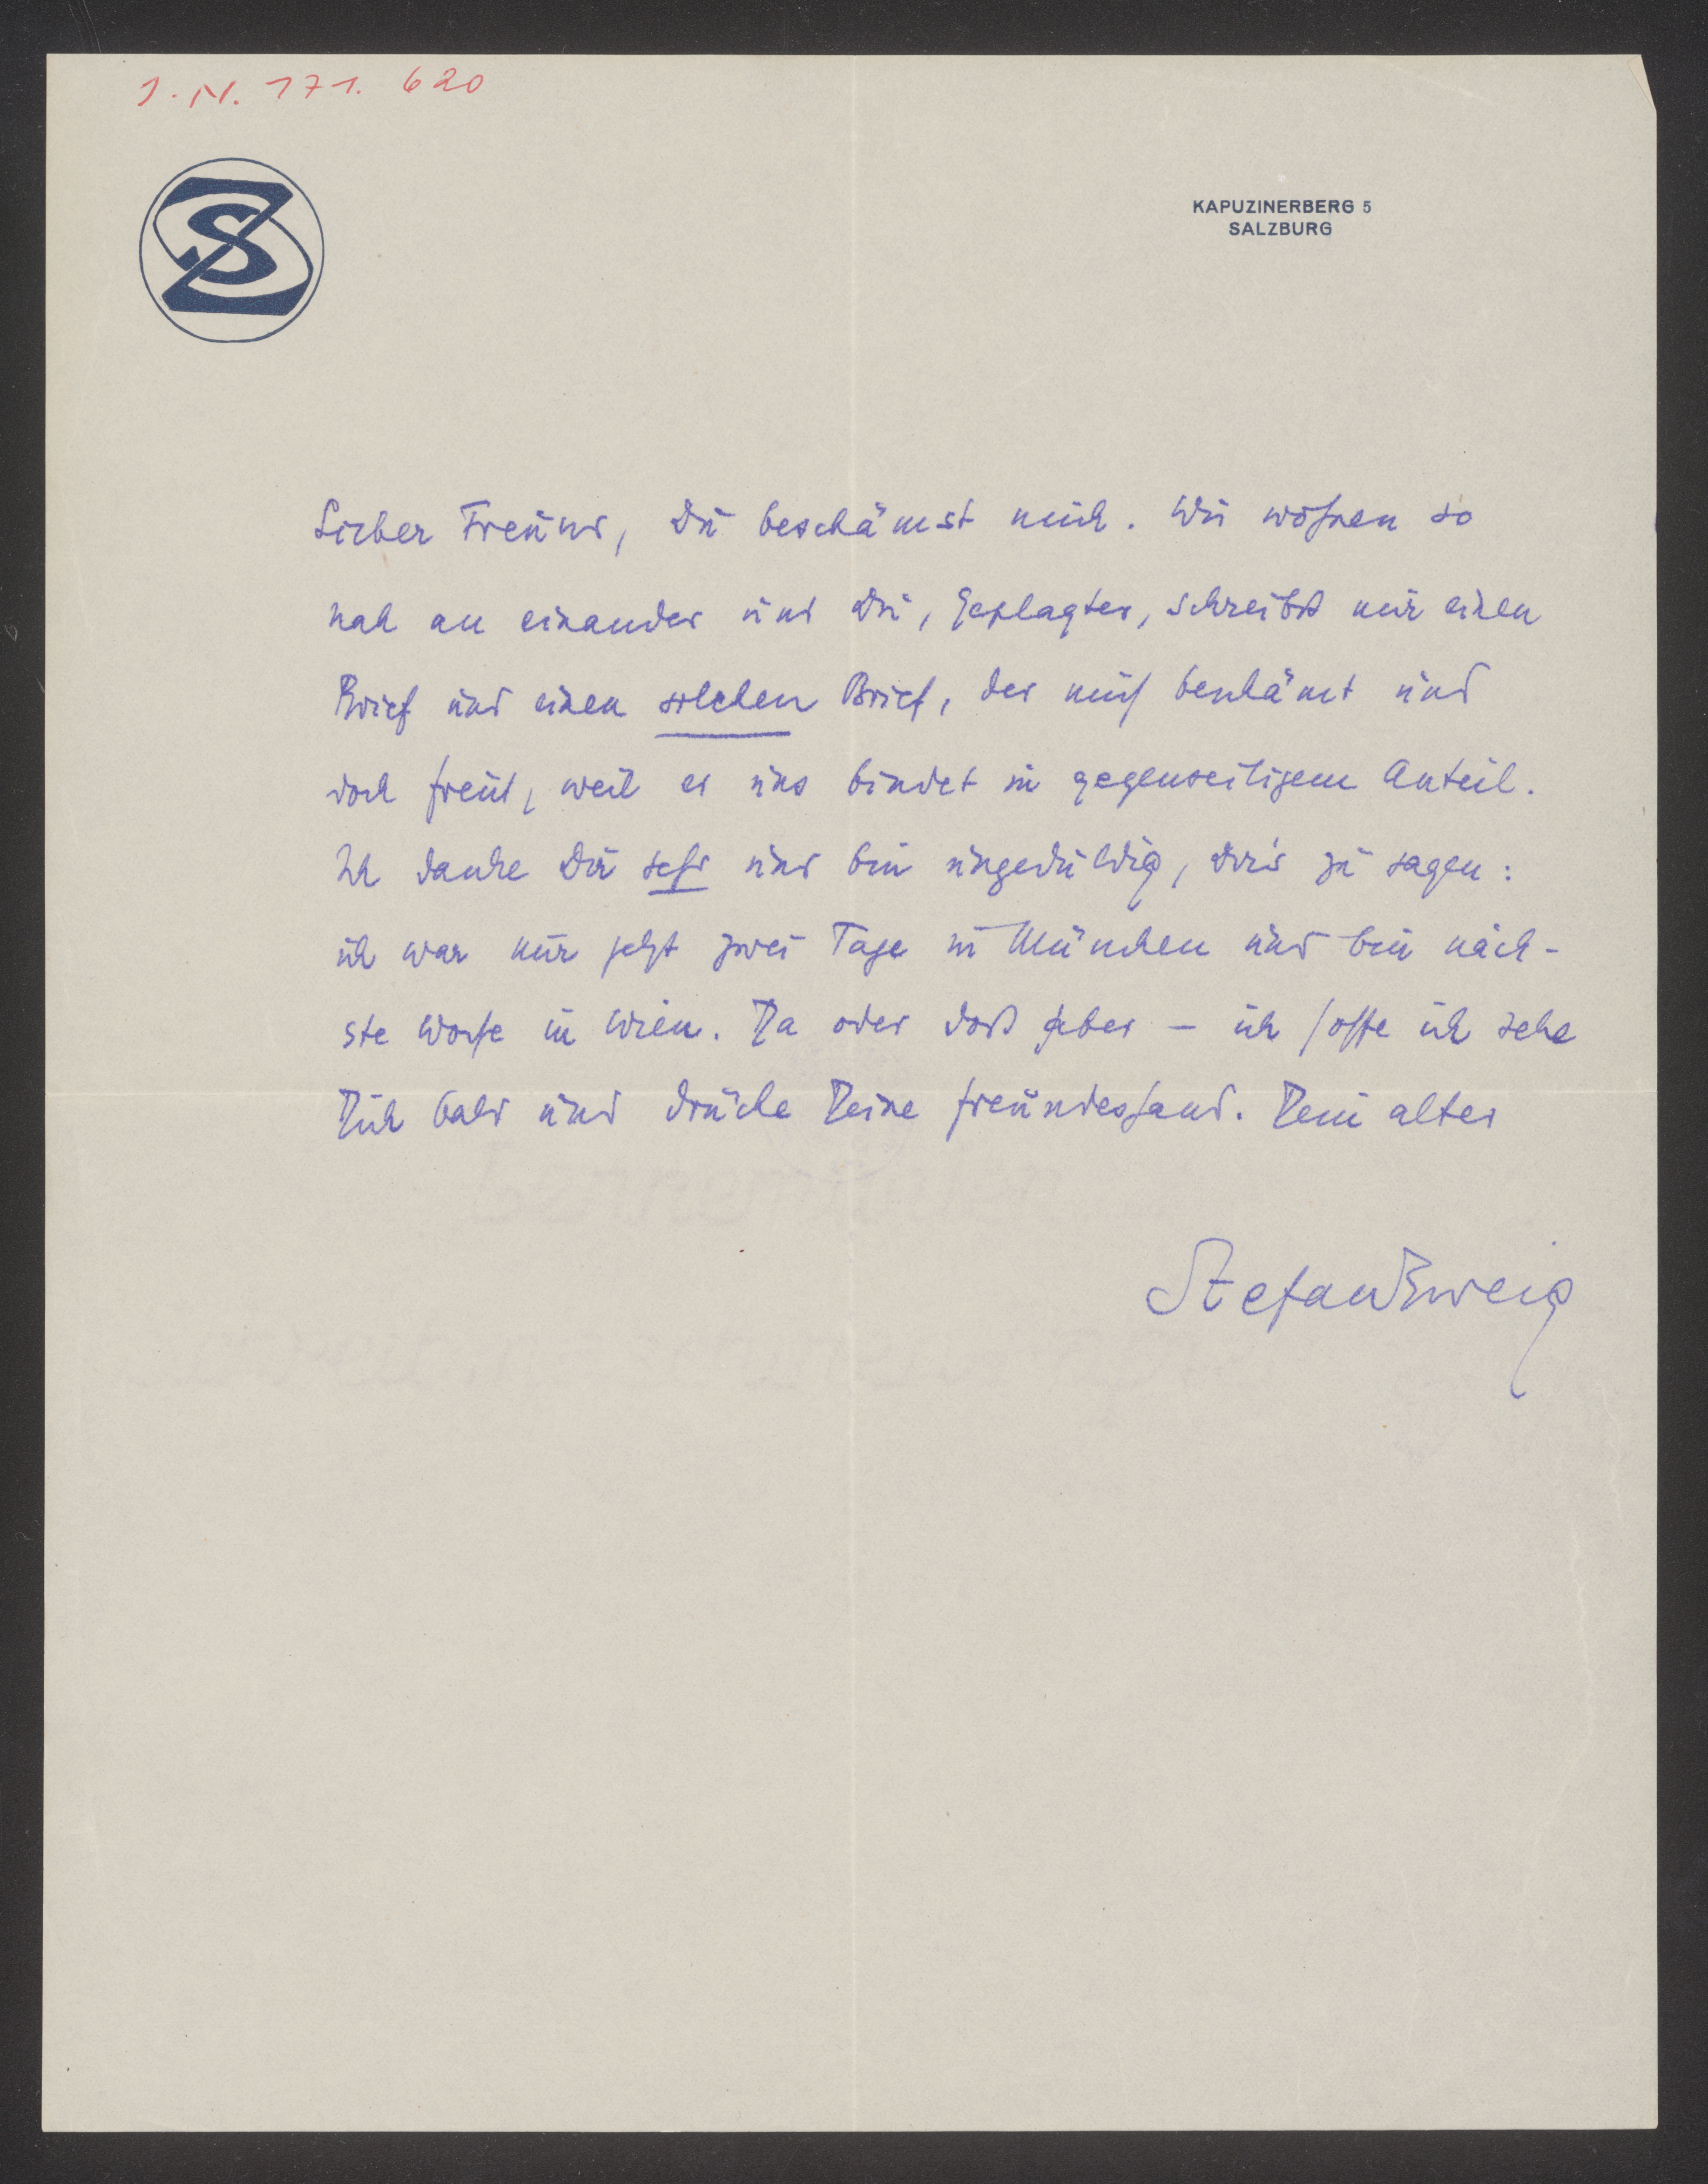 J.N. 171.620
SZ
KAPUZINERBERG 5
SALZBURG
Lieber Freund, Du beschämst mich. Wir wohnen so
nah an einander und Du, Geplagter, schreibst mir einen
Brief und einen solchen Brief, der mich beschämt und
doch freut, weil er uns bindet in gegenseitigem Anteil.
Ich danke Dir sehr und bin ungeduldig, dir's zu sagen:
ich war nur jetzt zwei Tage in München und bin näch-
ste Woche in Wien. Da oder dort aber – ich hoffe ich sehe
Dich bald und drücke Deine Freundeshand. Dein alter
Stefan Zweig